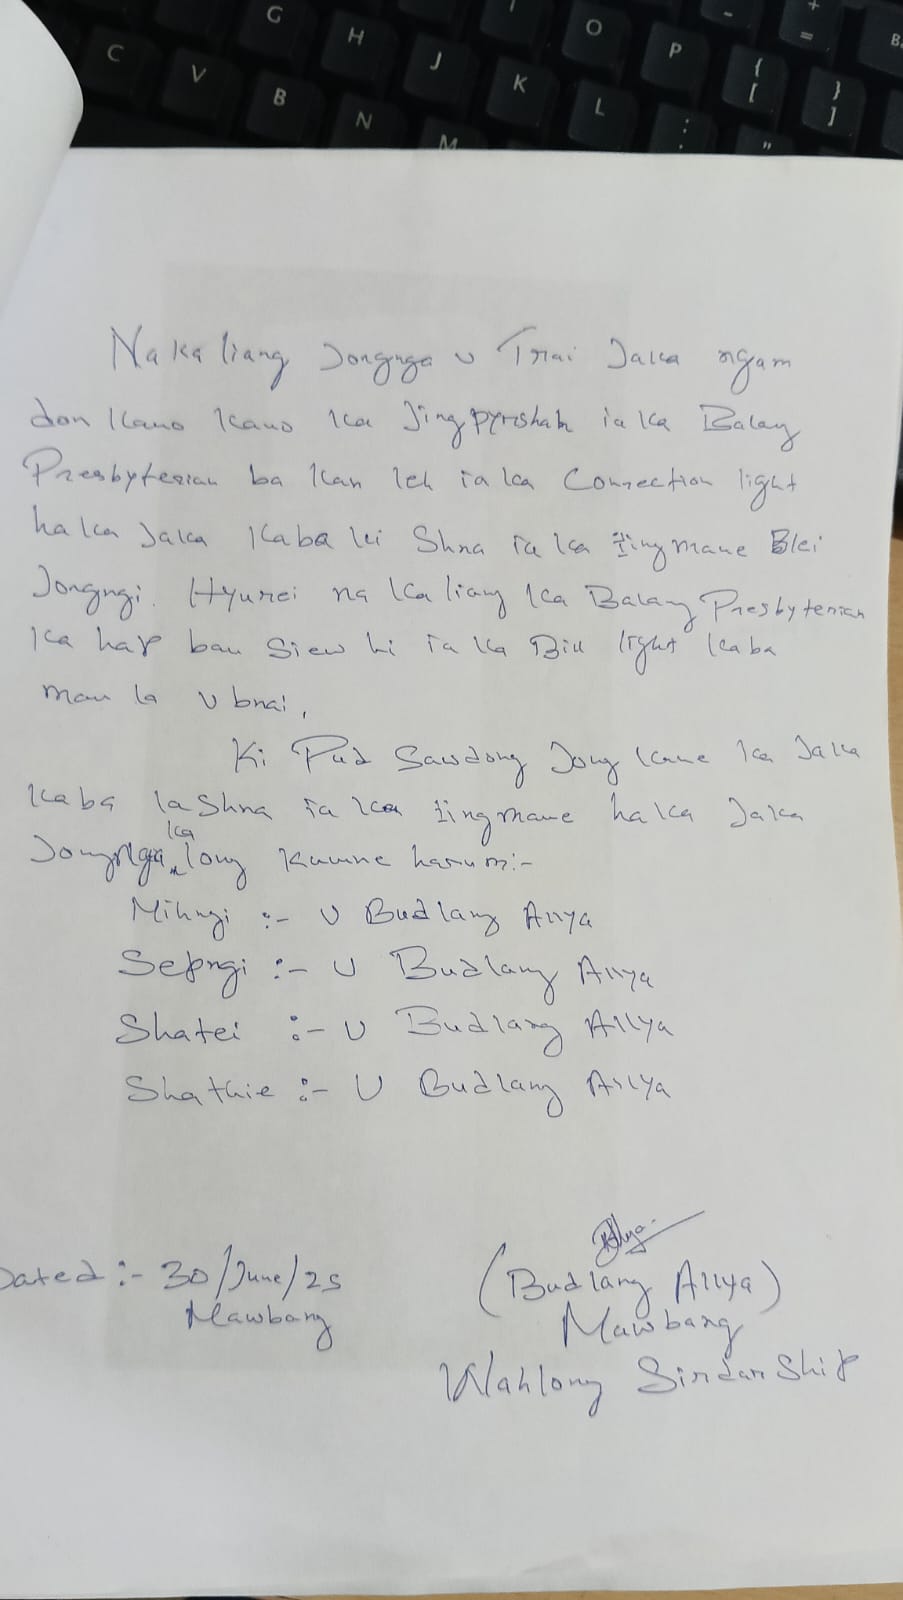 G H J K L O P C V B N M
Naka liang Jongnga u Trai Jaka ngam
don kano kano ka Jingpyrshah ia ka Balang
Presbyterian ba kan leh ia ka Connection light
ha ka Jaka kaba ki Shna ia ka Iingmane Blei
Jongngi. Hynrei na ka liang ka Balang Presbyterian
ka hap ban siew hi ia ka Bill light kaba
man la u bnai,
Ki Pud Sawdong Jong kane ka Jaka
kaba la Shna ia ka iingmane ha ka Jaka
Jongnga ka long kumne harum:-
Mihngi :- U Budlang
Sepngi :- U Budlang
Shatei :- U Budlang
Shathie :- U Budlang
Dated :- 30/June/25
Mawbang
(Budlang
Mawbang
Wahlong Sirdarship